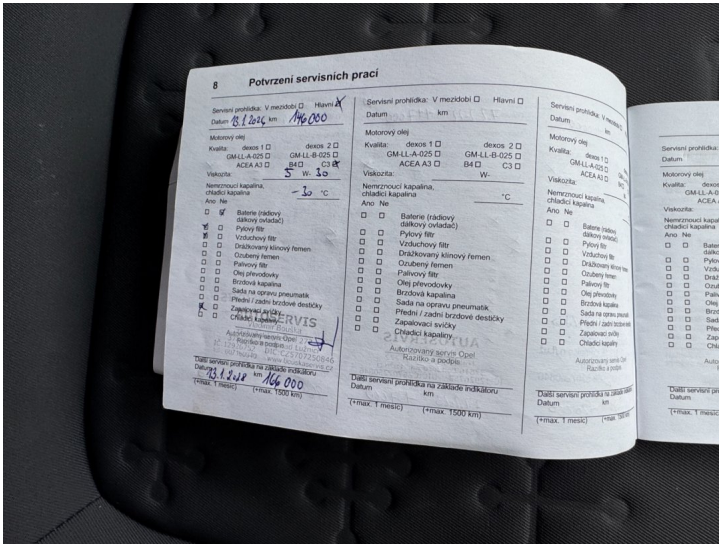 8 Potvrzení servisních prací
Servisní prohlídka: V mezidobí Hlavní
Datum 13.1.2026 km 146 000
Motorový olej
Kvalita: dexos 1 dexos 2
GM-LL-A-025 GM-LL-B-025
ACEA A3 B4 C3
Viskozita: 5 W- 30
Nemrznoucí kapalina,
chladicí kapalina -30 °C
Ano Ne
Baterie (rádiový
dálkový ovladač)
Pylový filtr
Vzduchový filtr
Drážkovaný klínový řemen
Ozubený řemen
Palivový filtr
Olej převodovky
Brzdová kapalina
Sada na opravu pneumatik
Přední / zadní brzdové destičky
Zapalovací svíčky
Chladicí kapaliny
AUTOSERVIS
Autorizovaný servis Opel
Razítko a podpis
Další servisní prohlídka na základě indikátoru
Datum 13.1.2028 km 166 000
(+max. 1 měsíc) (+max. 1500 km)
Servisní prohlídka: V mezidobí Hlavní
Datum km
Motorový olej
Kvalita: dexos 1 dexos 2
GM-LL-A-025 GM-LL-B-025
ACEA A3 B4 C3
Viskozita: W-
Nemrznoucí kapalina,
chladicí kapalina °C
Ano Ne
Baterie (rádiový
dálkový ovladač)
Pylový filtr
Vzduchový filtr
Drážkovaný klínový řemen
Ozubený řemen
Palivový filtr
Olej převodovky
Brzdová kapalina
Sada na opravu pneumatik
Přední / zadní brzdové destičky
Zapalovací svíčky
Chladicí kapaliny
Autorizovaný servis Opel
Razítko a podpis
Další servisní prohlídka na základě indikátoru
Datum km
(+max. 1 měsíc) (+max. 1500 km)
Servisní prohlídka: V mezidobí
Datum km
Motorový olej
Kvalita: dexos 1
GM-LL-A-025
ACEA A3
Viskozita:
Nemrznoucí kapalina,
chladicí kapalina
Ano Ne
Baterie (rádiový
dálkový ovladač)
Pylový filtr
Vzduchový filtr
Drážkovaný klínový řemen
Ozubený řemen
Palivový filtr
Olej převodovky
Brzdová kapalina
Sada na opravu pneumatik
Přední / zadní brzdové destičky
Zapalovací svíčky
Chladicí kapaliny
Autorizovaný servis Opel
Razítko a podpis
Další servisní prohlídka na základě
Datum km
(+max. 1 měsíc) (+max. 1500 km)
Servisní prohlídka:
Datum
Motorový olej
Kvalita:
Viskozita:
Nemrznoucí kapalina,
chladicí kapalina
Ano Ne
Další servisní
Datum
(+max. 1 měsíc)